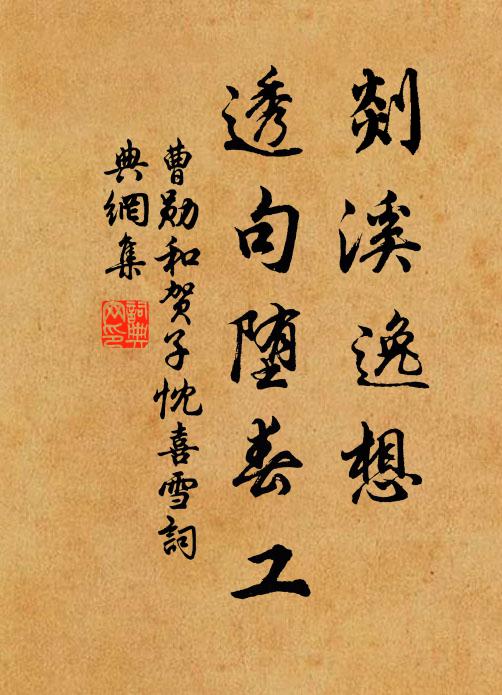 剡溪逸想
透句堕春工
曹勋和贺子忱喜雪詞
典網集
詞典网印